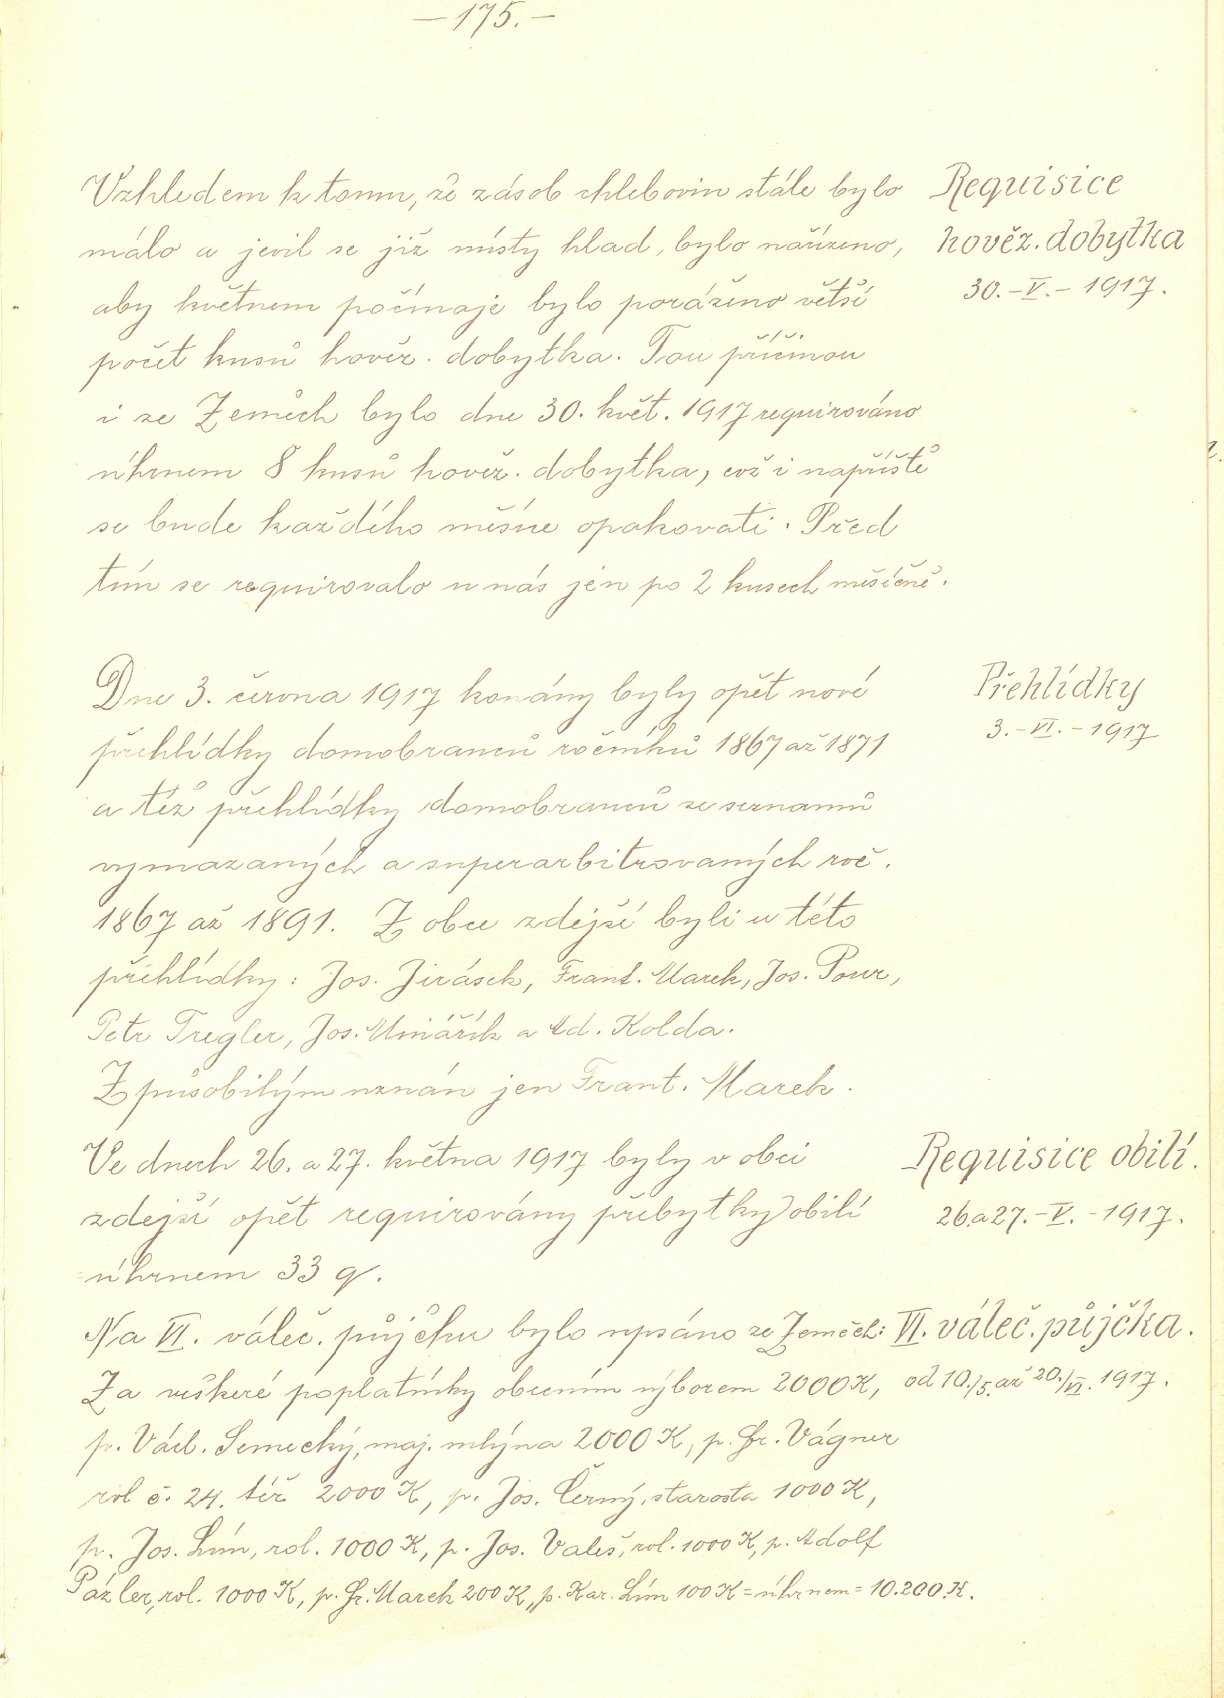 — 175. —
Vzhledem k tomu, že zásob chlebovin stále bylo
málo a jevil se již místy hlad, bylo nařízeno,
aby květnem počínaje bylo poráženo větší
počet kusů hověz. dobytka. Tou příčinou
i ze Zeměch bylo dne 30. květ. 1917 requirováno
úhrnem 8 kusů hověz. dobytka, což i napříště
se bude každého měsíce opakovati. Před
tím se requirovalo u nás jen po 2 kusech měsíčně.
Requisice
hověz. dobytka
30.-V.-1917.
Dne 3. června 1917 konány byly opět nové
přehlídky domobranců ročníků 1867 až 1871
a též přehlídky domobranců ze seznamů
vymazaných a superarbitrovaných roč.
1867 až 1891. Z obce zdejší byli u této
přehlídky: Jos. Jirásek, Frant. Marek, Jos. Pour,
Petr Tregler, Jos. Mniářík a Ad. Kolda.
Způsobilým uznán jen Frant. Marek.
Přehlídky
3.-VI.-1917
Ve dnech 26. a 27. května 1917 byly v obci
zdejší opět requirovány přebytky obilí
úhrnem 33 q.
Requisice obilí.
26. a 27.-V.-1917.
Na VI. váleč. půjčku bylo upsáno ze Zeměch:
Za veškeré poplatníky obecním výborem 2000 K,
p. Václ. Semecký, maj. mlýna 2000 K, p. Fr. Vágner
rol č. 24. též 2000 K, p. Jos. Černý, starosta 1000 K,
p. Jos. Lím, rol. 1000 K, p. Jos. Valeš, rol. 1000 K, p. Adolf
Pázler, rol. 1000 K, p. Fr. Marek 200 K, p. Kar. Lím 100 K = úhrnem = 10.200 K.
VI. váleč. půjčka.
od 10./5. až 20./VI. 1917.